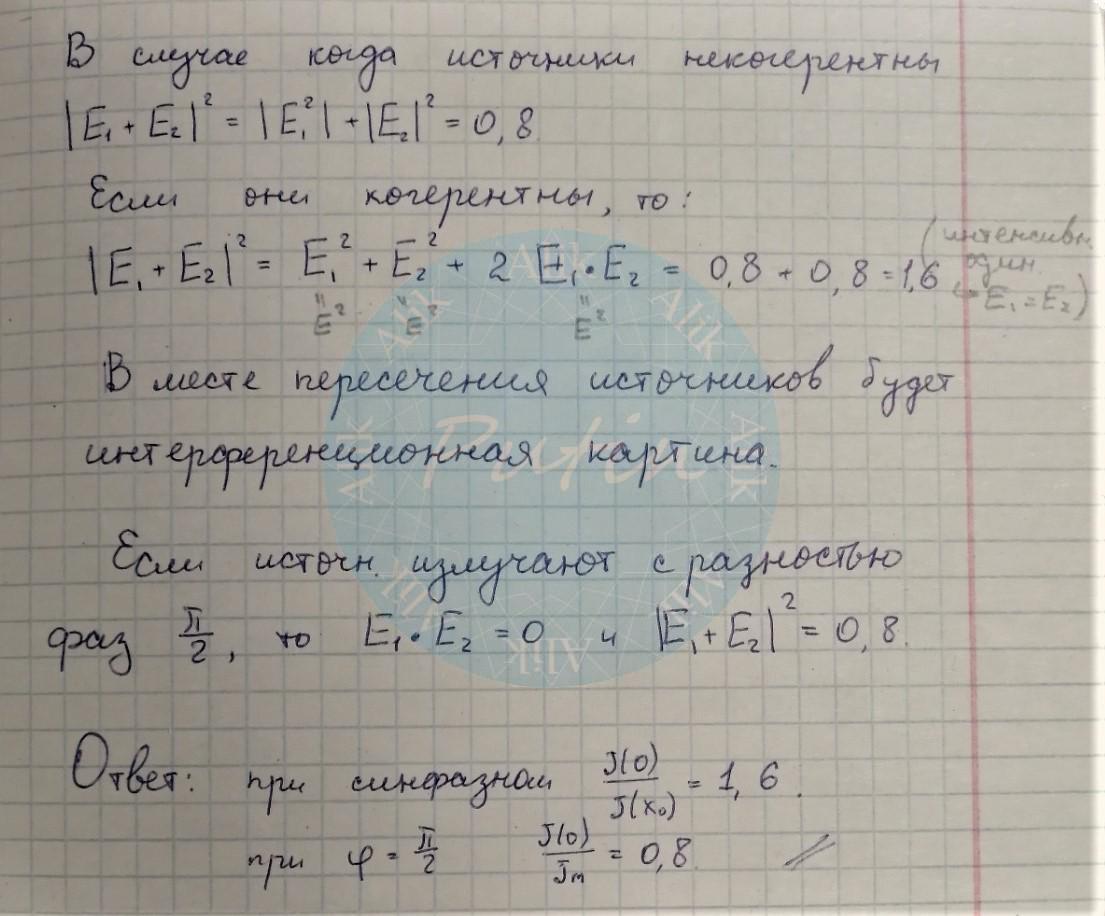 В случае когда источники некогерентны
|E₁ + E₂|² = |E₁²| + |E₂|² = 0,8
Если они когерентны, то:
|E₁ + E₂|² = E₁² + E₂² + 2 E₁·E₂ = 0,8 + 0,8 = 1,6
(интенсивн.
один.
E₁ = E₂)
" E² " E² " E²
В месте пересечения источников будет
интерференционная картина.
Если источн. излучают с разностью
фаз π/2, то E₁·E₂ = 0 и |E₁+E₂|² = 0,8.
Ответ: при синфазном J(0)/J(x₀) = 1,6.
при φ = π/2 J(0)/Jm = 0,8
Alik
Putin